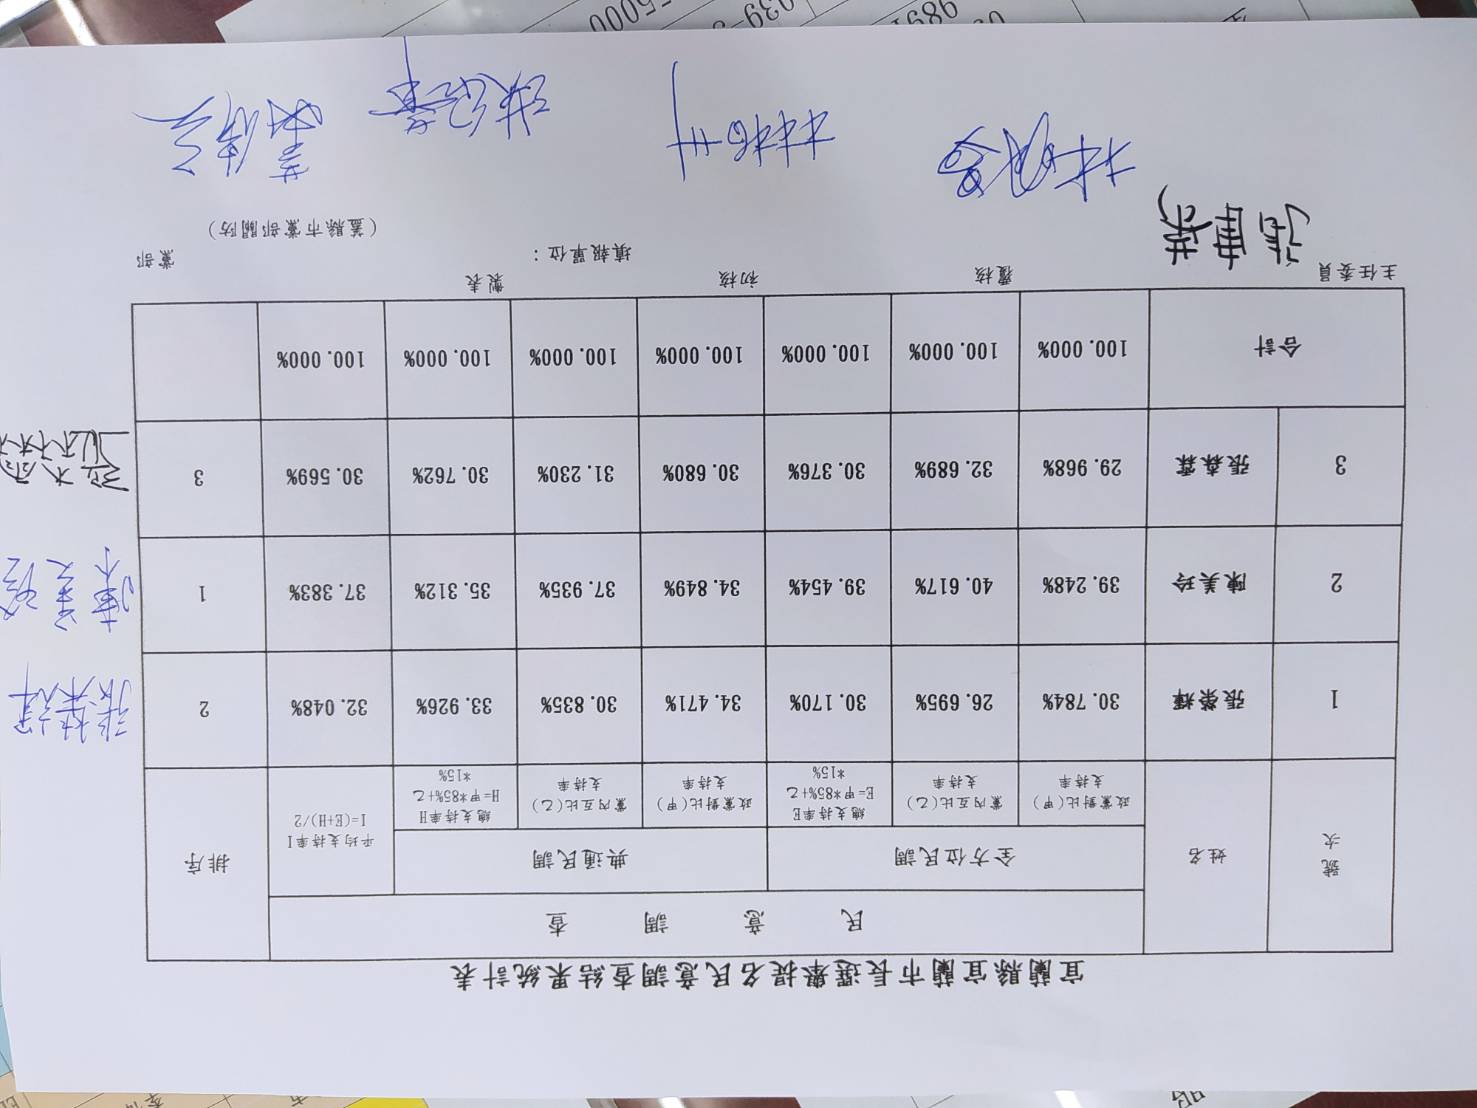 宜蘭縣宜蘭市長選舉提名民意調查結果統計表
號次 姓名 民意調查 排序
全方位民調 典通民調 平均支持率I I=(E+H)/2
政黨對比(甲)支持率 黨內互比(乙)支持率 總支持率E E=甲*85%+乙*15% 政黨對比(甲)支持率 黨內互比(乙)支持率 總支持率H H=甲*85%+乙*15%
1 張榮輝 30.784% 26.695% 30.170% 34.471% 30.835% 33.926% 32.048% 2 張榮輝
2 陳美玲 39.248% 40.617% 39.454% 34.849% 37.935% 35.312% 37.383% 1 陳美玲
3 張森霖 29.968% 32.689% 30.376% 30.680% 31.230% 30.762% 30.569% 3
合計 100.000% 100.000% 100.000% 100.000% 100.000% 100.000% 100.000%
主任委員 覆核 初核 製表
填報單位： 黨部
(蓋縣市黨部關防)